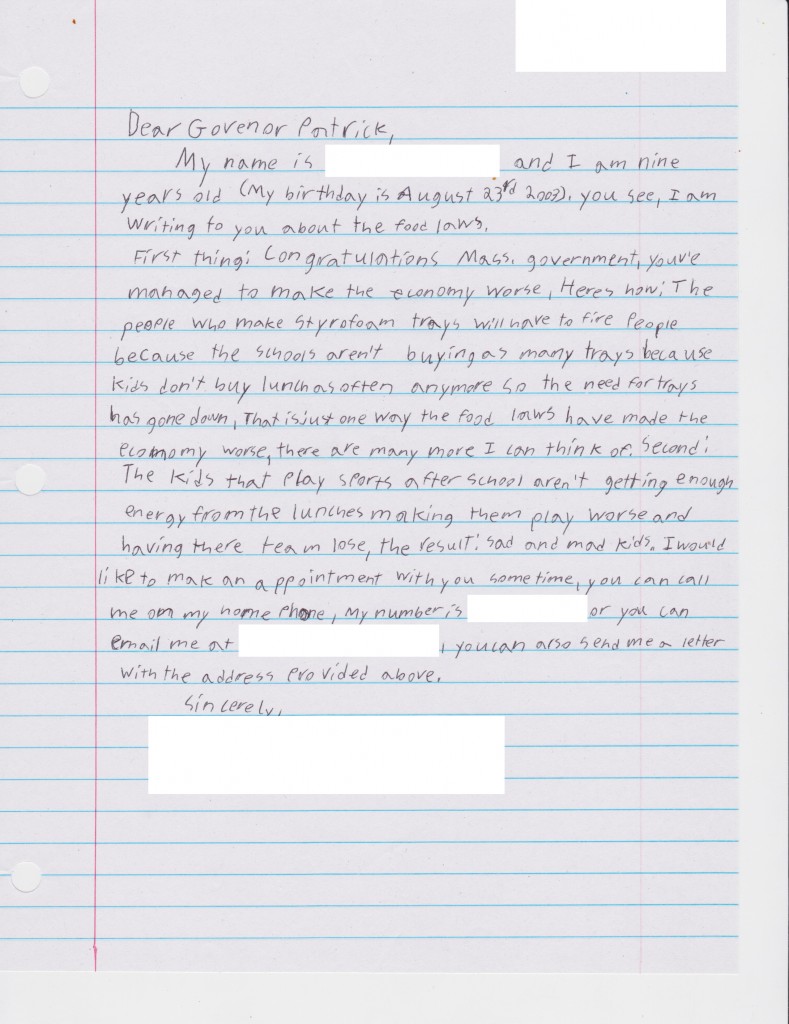 Dear Govenor Patrick,
My name is and I am nine
years old (My birthday is August 23rd 2003). you see, I am
writing to you about the food laws.
First thing: Congratulations Mass. government, youv'e
managed to make the economy worse, Heres how: The
people who make Styrofoam trays will have to fire People
because the schools aren't buying as many trays because
kids don't buy lunch as often anymore so the need for trays
has gone down, That is just one way the food laws have made the
economy worse, there are many more I can think of. Second:
The kids that play sports after school aren't getting enough
energy from the lunches making them play worse and
having there team lose, the result: sad and mad kids. I would
like to mak an appointment with you sometime, you can call
me on my home phone, my number is or you can
email me at , you can also send me a letter
with the address provided above.
Sincerely,